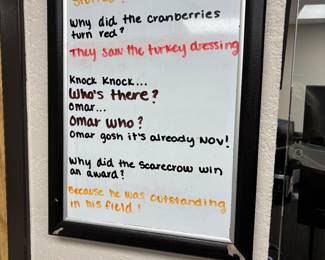 Why did the cranberries
turn red?
They saw the turkey dressing
Knock Knock...
Who's there?
Omar...
Omar who?
Omar gosh it's already Nov!
Why did the Scarecrow win
an award?
Because he was outstanding
in his field!